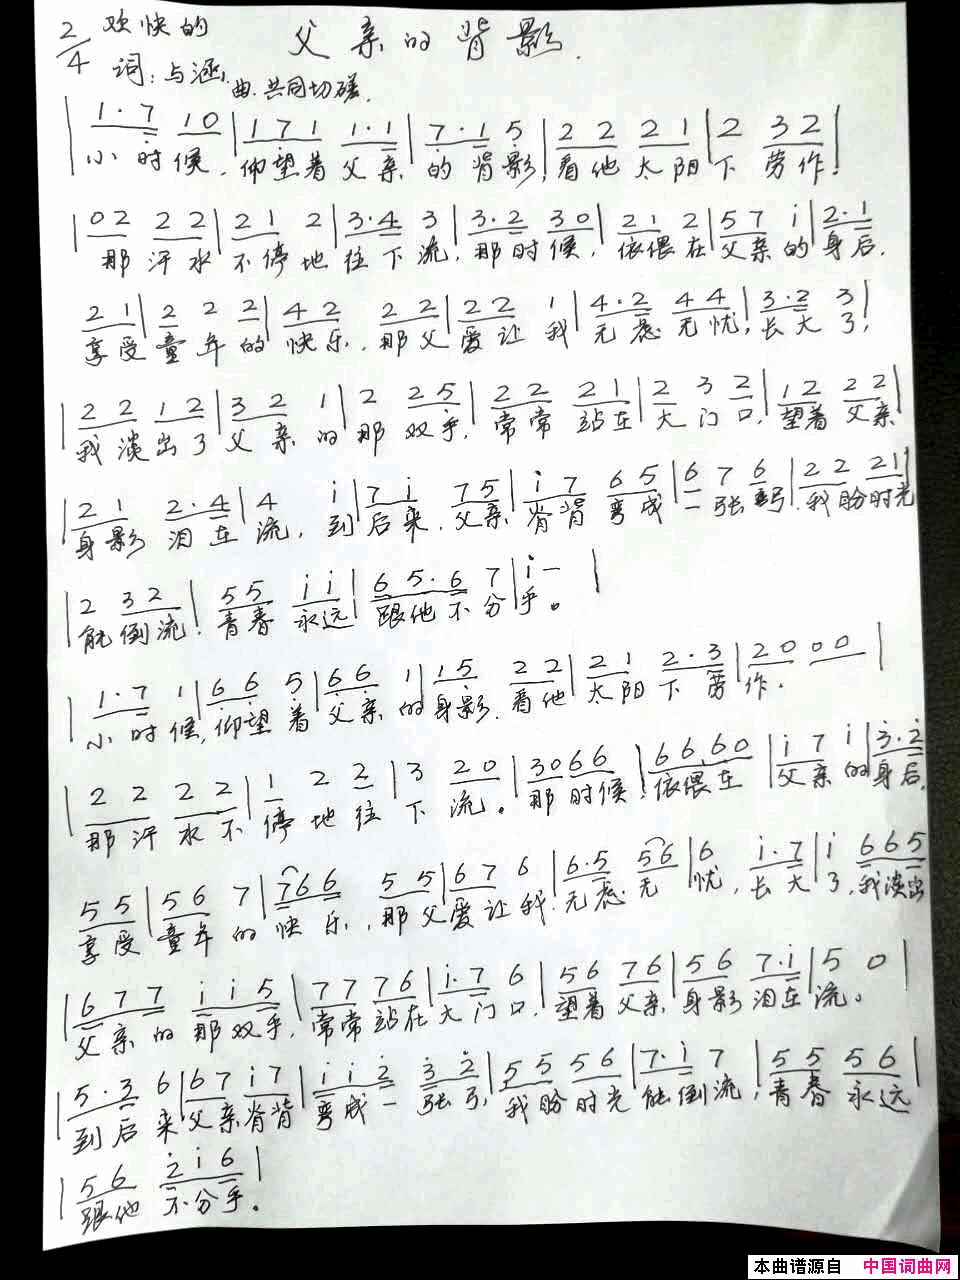 2/4 欢快的 父亲的背影
词：与涵 曲：共同切磋
|1·7 10|171 1·1|7·1 5|22 21|2 32|
小时候，仰望着父亲的背影，看他太阳下劳作，
|02 22|21 2|3·4 3|3·2 30|21 2|57 i|2·1
那汗水不停地往下流，那时候，依偎在父亲的身后，
21|2 2 2|42 22|22 1|4·2 44|3·2 3|
享受童年的快乐，那父爱让我无虑无忧，长大了，
|22 12|32 1|2 25|22 21|2 3 2|12 22|
我淡出了父亲的那双手，常常站在大门口，望着父亲
21 2·4|4 i|7i 75|i7 65|6 7 6|22 21|
身影泪在流，到后来，父亲脊背弯成一张弓，我盼时光
|2 32|55 ii|65·6 7|i-|
能倒流，青春永远跟他不分手。
|1·7 1|66 5|66 1|15 22|21 2·3|20 00|
小时候，仰望着父亲的身影，看他太阳下劳作，
|22 22|1 2 2|3 20|3066|6660|i 7 i|3·2
那汗水不停地往下流。那时候，依偎在父亲的身后，
55|56 7|766 55|676|6·5 56|6 i·7|i 665
享受童年的快乐，那父爱让我无虑无忧，长大了，我淡出
|677 ii5|77 76|i·7 6|56 76|56 7·i|5 0|
父亲的那双手，常常站在大门口，望着父亲身影泪在流。
5·3 6|67 i7|ii2 32|55 56|7·i 7|55 56|
到后来父亲脊背弯成一张弓，我盼时光能倒流，青春永远
|56 2i6|
跟他不分手。
本曲谱源自 中国词曲网